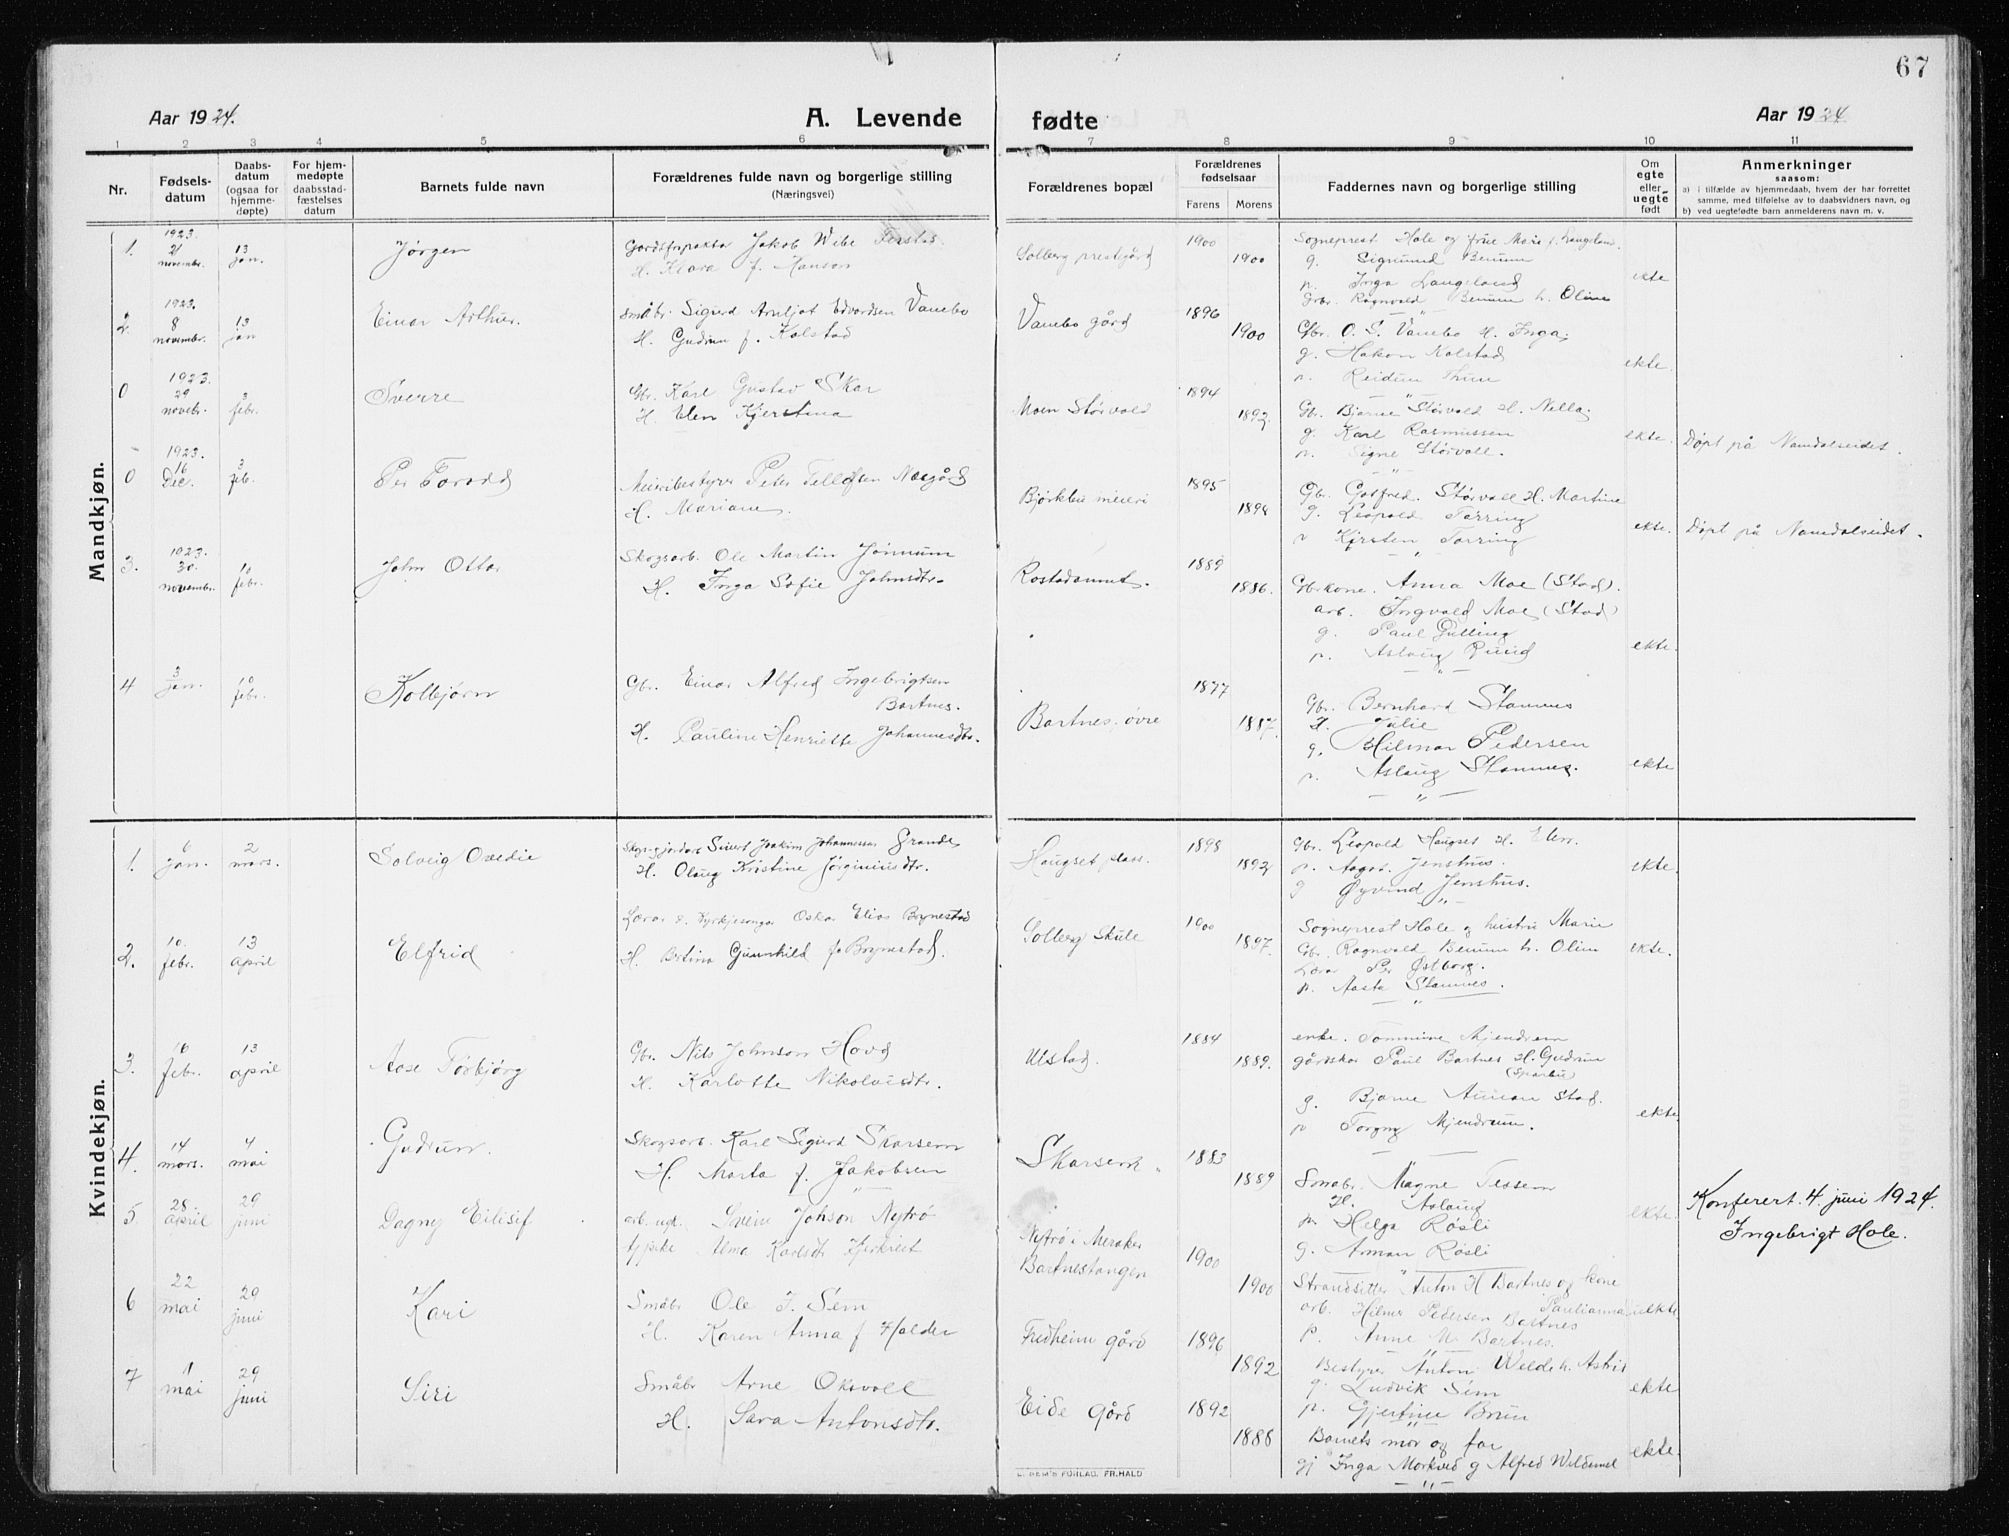 67
Aar 1924.
A. Levende fødte
Aar 1924
1 2 3 4 5 6 7 8 9 10 11
Nr.
Fødsels-
datum
Daabs-
datum
(ogsaa for
hjemme-
døpte)
For hjem-
medøpte
daabsstad-
fæstelses
datum
Barnets fulde navn
Forældrenes fulde navn og borgerlige stilling
(Næringsvei)
Forældrenes bopæl
Forældrenes
fødselsaar
Farens Morens
Faddernes navn og borgerlige stilling
Om
egte
eller
uegte
født
Anmerkninger
saasom:
a) i tilfælde av hjemmedaab, hvem der har forrettet
samme, med tilføielse av to daabsvidners navn, og
b) ved uegtefødte barn anmelderens navn m. v.
Mandkjøn.
1. 1923. 21 novembr. 13 jan. Jørgen
Jakob Wibe
H. Klara f. Hanson
Solberg prestgård 1900 1900
Sogneprest Hole og frue Marie f. Langeland.
g. Sigmund Benum
p. Inga Langeland
Gbr. Ragnvald Benum h. Oline
ekte
2. 1923. 8 novembr. 13 jan Einar Arthur.
Småbr. Sigurd Arntjot Edvardsen Vanebo
H. Gudrun f. Kolstad
Vanebo gård 1896 1900
Gbr. O. S. Vanebo H. Inga,
g. Håkon Kolstad
p. Reidun Thun
ekte.
0 1923. 29 novebr. 3 febr. Sverre
Gbr. Karl Gustav Skar
H. Elen Kjerstina
Moen Størvold 1894 1892.
Gbr. Bjarne Størvold H. Nella,
g. Karl Rasmussen
p. Signe Størvoll.
ekte. Døpt på Namdalseidet.
0 1923. 16 Dec. 3 feb. Per Torodd
Meieribestyrer Peter Tellefsen Nesgård
H. Mariane.
Bjørkbu meieri 1895 1894
Gbr. Gotfred Størvoll H. Martine
g. Leopold Tørring
p Kirsten Tørring
ekte. Døpt på Namdalseidet.
3. 1923. 30. novembr. 10 febr. John Ottar
Skogsarb. Ole Martin Jønnum
H. Inga Sofie Johnsdtr.
1889 1886.
Gbrkone. Anna Moe (Stod).
arb. Ingvald Moe (Stod)
g. Paul Gulling
p. Aslaug
ekte.
4 3 jan. 10 febr. Kolbjørn
Gbr. Einar Alfred Ingebrigtsen
Bartnes.
H. Pauline Henriette Johannesdtr.
Bartnes, øvre 1877 1887.
Gbr. Bernhard Stamnes
H. Julie
g. Hilmar Pedersen
p. Aslaug Stamnes.
ekte
Kvindekjøn.
1. 6 jan. 2 mars. Solveig Ovedie
Sivert Joakim Johannessen Grande
H. Olaug Kristine Jørginiusdtr.
Haugset plass. 1898 1892
Gbr. Leopold Haugset H. Elen.
p. Aagot. Jenshus.
g Øyvind Jenshus.
ekte.
2. 10. febr. 13 april Elfrid
Lærar o. kyrkjesongar Oskar Elias Brynestad
H. Bertina Gunnhild f. Brynestad.
Solberg Skule 1900 1897.
Sogneprest Hole og hustru Marie
Gbr. Ragnvald Benum h. Oline
Lærar Per Østborg.
p. Aasta Stamnes.
ekte.
3. 16 febr. 13 april Aase Torbjørg
Gbr. Nils Johnson Hovd
H. Karlotte Nikolaisdtr.
Ulstad. 1884 1889.
enke. Tommine Mjendrem
gårdskar Paul Bartnes H. Gudrun
(Sparbu)
g. Bjarne Aunan Stod.
p Torgny Mjendrem.
ekte
4. 14 mars. 4 mai Gudrun.
Skogsarb. Karl Sigurd Skarsem
H. Marta f. Jakobsen
Skarsem 1883 1889
Småbr. Magne Tessem
H. Aslaug
p. Helga Røsli
g. Arman Røsli
ekte.
Konferert 4. juni 1924.
Ingebrigt Hole.
5. 28 april 29 juni Dagny Eilisif
arb. ugt. Svein Johson Nytrø
tjpike Alma Karlsdtr
Nytrø i Meraker
Bartnestangen 1900 1900
Strandsitter Anton H Bartnes og kone
Paulianna
arb. Hilmer Pedersen Bartnes
p. Anne M. Bartnes.
uekte
6 22 mai 29 juni Kari
Småbr Ole J. Sem
H. Karen Anna f Halder
Fredheim gård 1896 1892
Bestyrer Anton Welde h. Astrid
g. Ludvik Sem
p. Gjertine Brun
ekte
7 1 mai 29 juni Siri
Småbr Arne Oksvoll
H. Sara Antonsdtr.
Eide gård 1892 1888
Barnets mor og far
gj Inga Morkved g Alfred Weldemel
ekte.
E. SEM'S FORLAG, FR.HALD